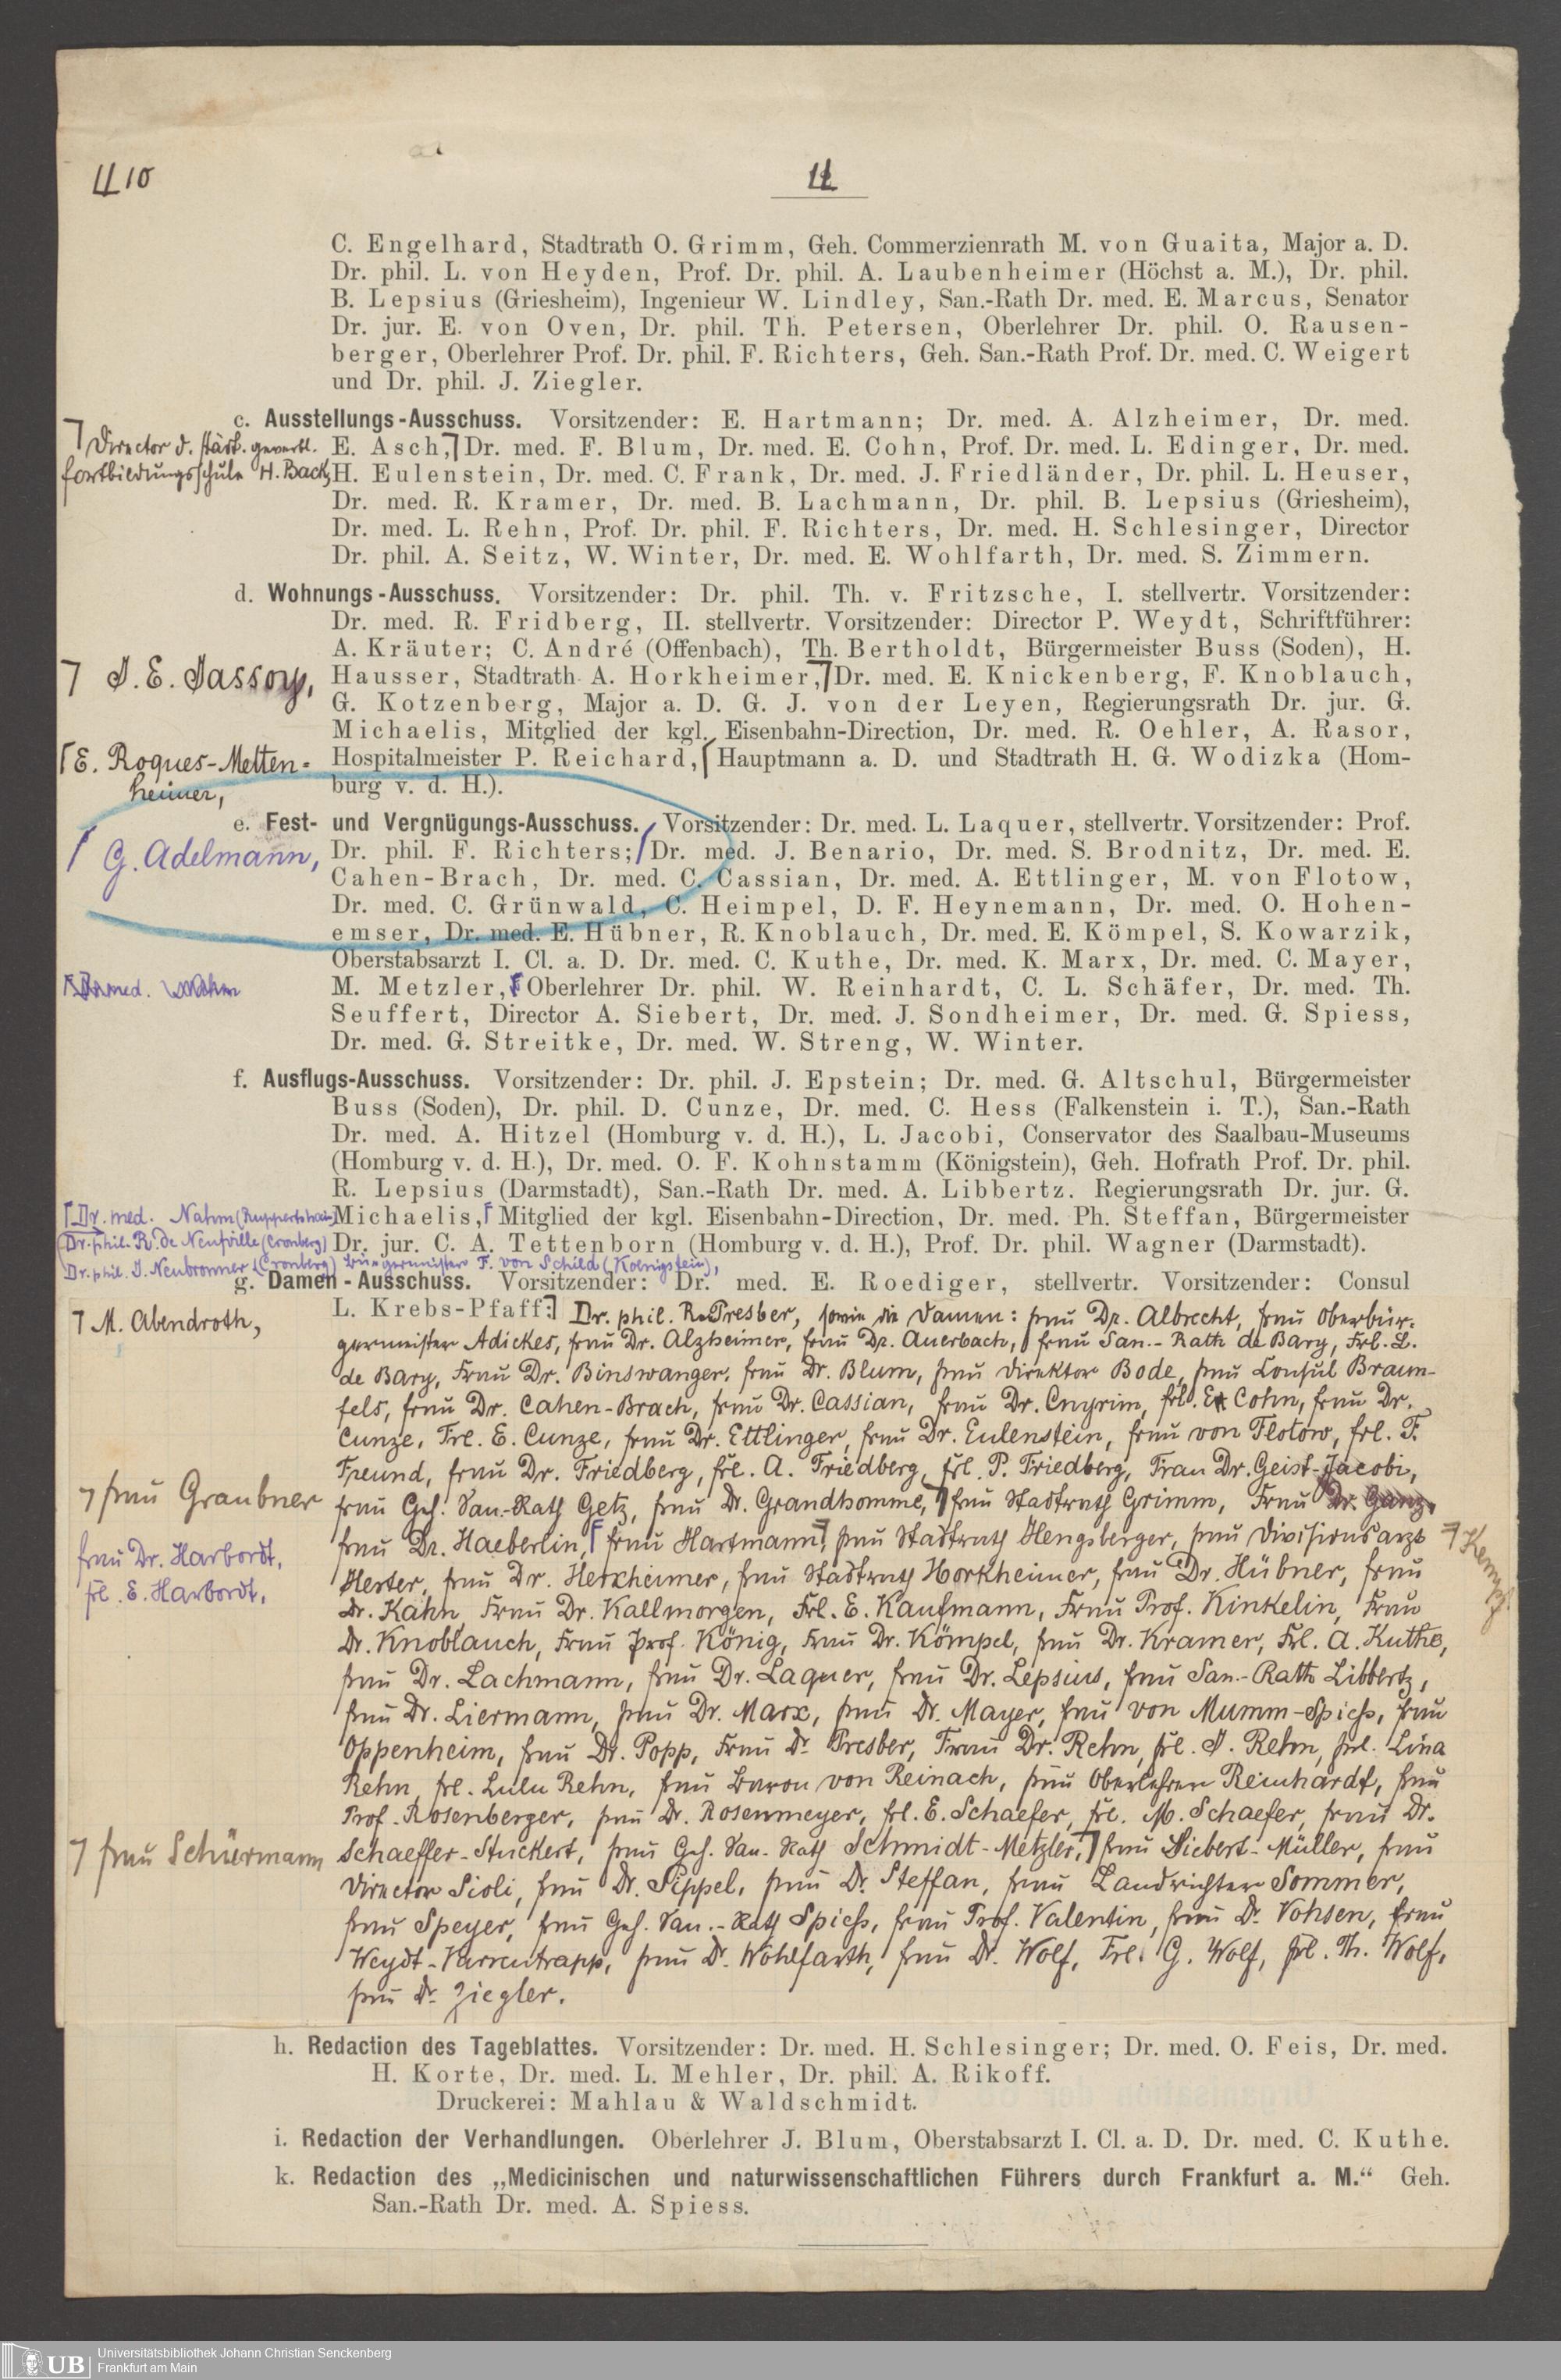 10
11
C. Engelhard, Stadtrath O. Grimm, Geh. Commerzienrath M. von Guaita, Major a. D.
Dr. phil. L. von Heyden, Prof. Dr. phil. A. Laubenheimer (Höchst a. M.), Dr. phil.
B. Lepsius (Griesheim), Ingenieur W. Lindley, San.-Rath Dr. med. E. Marcus, Senator
Dr. jur. E. von Oven, Dr. phil. Th. Petersen, Oberlehrer Dr. phil. O. Rausen-
berger, Oberlehrer Prof. Dr. phil. F. Richters, Geh. San.-Rath Prof. Dr. med. C. Weigert
und Dr. phil. J. Ziegler.
c. Ausstellungs-Ausschuss. Vorsitzender: E. Hartmann; Dr. med. A. Alzheimer, Dr. med.
Director d. städt. gewerbl.
E. Asch, Dr. med. F. Blum, Dr. med. E. Cohn, Prof. Dr. med. L. Edinger, Dr. med.
Fortbildungsschule H. Back,
H. Eulenstein, Dr. med. C. Frank, Dr. med. J. Friedländer, Dr. phil. L. Heuser,
Dr. med. R. Kramer, Dr. med. B. Lachmann, Dr. phil. B. Lepsius (Griesheim),
Dr. med. L. Rehn, Prof. Dr. phil. F. Richters, Dr. med. H. Schlesinger, Director
Dr. phil. A. Seitz, W. Winter, Dr. med. E. Wohlfarth, Dr. med. S. Zimmern.
d. Wohnungs-Ausschuss. Vorsitzender: Dr. phil. Th. v. Fritzsche, I. stellvertr. Vorsitzender:
Dr. med. R. Fridberg, II. stellvertr. Vorsitzender: Director P. Weydt, Schriftführer:
A. Kräuter; C. André (Offenbach), Th. Bertholdt, Bürgermeister Buss (Soden), H.
J. E. Jassoy,
Hausser, Stadtrath A. Horkheimer, Dr. med. E. Knickenberg, F. Knoblauch,
G. Kotzenberg, Major a. D. G. J. von der Leyen, Regierungsrath Dr. jur. G.
Michaelis, Mitglied der kgl. Eisenbahn-Direction, Dr. med. R. Oehler, A. Rasor,
E. Roques-Metten-
Hospitalmeister P. Reichard, Hauptmann a. D. und Stadtrath H. G. Wodizka (Hom-
heimer,
burg v. d. H.).
e. Fest- und Vergnügungs-Ausschuss. Vorsitzender: Dr. med. L. Laquer, stellvertr. Vorsitzender: Prof.
G. Adelmann,
Dr. phil. F. Richters; Dr. med. J. Benario, Dr. med. S. Brodnitz, Dr. med. E.
Cahen-Brach, Dr. med. C. Cassian, Dr. med. A. Ettlinger, M. von Flotow,
Dr. med. C. Grünwald, C. Heimpel, D. F. Heynemann, Dr. med. O. Hohen-
emser, Dr. med. E. Hübner, R. Knoblauch, Dr. med. E. Kömpel, S. Kowarzik,
Oberstabsarzt I. Cl. a. D. Dr. med. C. Kuthe, Dr. med. K. Marx, Dr. med. C. Mayer,
Dr. med. Nahm
M. Metzler, Oberlehrer Dr. phil. W. Reinhardt, C. L. Schäfer, Dr. med. Th.
Seuffert, Director A. Siebert, Dr. med. J. Sondheimer, Dr. med. G. Spiess,
Dr. med. G. Streitke, Dr. med. W. Streng, W. Winter.
f. Ausflugs-Ausschuss. Vorsitzender: Dr. phil. J. Epstein; Dr. med. G. Altschul, Bürgermeister
Buss (Soden), Dr. phil. D. Cunze, Dr. med. C. Hess (Falkenstein i. T.), San.-Rath
Dr. med. A. Hitzel (Homburg v. d. H.), L. Jacobi, Conservator des Saalbau-Museums
(Homburg v. d. H.), Dr. med. O. F. Kohnstamm (Königstein), Geh. Hofrath Prof. Dr. phil.
R. Lepsius (Darmstadt), San.-Rath Dr. med. A. Libbertz. Regierungsrath Dr. jur. G.
Dr. med. Nahm (Ruppertshain)
Michaelis, Mitglied der kgl. Eisenbahn-Direction, Dr. med. Ph. Steffan, Bürgermeister
Dr. phil. R. de Neufville (Cronberg)
Dr. jur. C. A. Tettenborn (Homburg v. d. H.), Prof. Dr. phil. Wagner (Darmstadt).
Dr. phil. J. Neubronner (Cronberg) Bürgermeister F. von Schild (Koenigstein),
g. Damen-Ausschuss. Vorsitzender: Dr. med. E. Roediger, stellvertr. Vorsitzender: Consul
M. Abendroth,
L. Krebs-Pfaff: Dr. phil. R. Presber, sowie die Damen: Frau Dr. Albrecht, Frau Oberbür-
germeister Adickes, Frau Dr. Alzheimer, Frau Dr. Auerbach, Frau San.-Rath de Bary, Frl. L.
de Bary, Frau Dr. Binswanger, Frau Dr. Blum, Frau Direktor Bode, Frau Consul Braun-
fels, Frau Dr. Cahen-Brach, Frau Dr. Cassian, Frau Dr. Cnyrim, Frl. E. Cohn, Frau Dr.
Cunze, Frl. E. Cunze, Frau Dr. Ettlinger, Frau Dr. Eulenstein, Frau von Flotow, Frl. F.
Freund, Frau Dr. Friedberg, Frl. A. Friedberg, Frl. P. Friedberg, Frau Dr. Geist-Jacobi,
Frau Graubner
Frau Geh. San.-Rath Getz, Frau Dr. Grandhomme, Frau Stadtrath Grimm, Frau Dr. Ganz,
Frau Dr. Harbordt,
Frau Dr. Haeberlin, Frau Hartmann, Frau Stadtrath Hengsberger, Frau Divisionsarzt
Kempf
Frl. E. Harbordt,
Herter, Frau Dr. Herxheimer, Frau Stadtrath Horkheimer, Frau Dr. Hübner, Frau
Dr. Kahn, Frau Dr. Kallmorgen, Frl. E. Kaufmann, Frau Prof. Kinkelin, Frau
Dr. Knoblauch, Frau Prof. König, Frau Dr. Kömpel, Frau Dr. Kramer, Frl. A. Kuthe,
Frau Dr. Lachmann, Frau Dr. Laquer, Frau Dr. Lepsius, Frau San.-Rath Libbertz,
Frau Dr. Liermann, Frau Dr. Marx, Frau Dr. Mayer, Frau von Mumm-Spiess, Frau
Oppenheim, Frau Dr. Popp, Frau Dr. Presber, Frau Dr. Rehn, Frl. J. Rehn, Frl. Lina
Rehn, Frl. Lulu Rehn, Frau Baron von Reinach, Frau Oberlehrer Reinhardt, Frau
Prof. Rosenberger, Frau Dr. Rosenmeyer, Frl. E. Schaefer, Frl. M. Schaefer, Frau Dr.
Frau Schürmann
Schaeffer-Stuckert, Frau Geh. San.-Rath Schmidt-Metzler, Frau Siebert-Müller, Frau
Director Sioli, Frau Dr. Sippel, Frau Dr. Steffan, Frau Landrichter Sommer,
Frau Speyer, Frau Geh. San.-Rath Spiess, Frau Prof. Valentin, Frau Dr. Vohsen, Frau
Weydt-Varrentrapp, Frau Dr. Wohlfarth, Frau Dr. Wolf, Frl. G. Wolf, Frl. Th. Wolf,
Frau Dr. Ziegler.
h. Redaction des Tageblattes. Vorsitzender: Dr. med. H. Schlesinger; Dr. med. O. Feis, Dr. med.
H. Korte, Dr. med. L. Mehler, Dr. phil. A. Rikoff.
Druckerei: Mahlau & Waldschmidt.
i. Redaction der Verhandlungen. Oberlehrer J. Blum, Oberstabsarzt I. Cl. a. D. Dr. med. C. Kuthe.
k. Redaction des „Medicinischen und naturwissenschaftlichen Führers durch Frankfurt a. M.“ Geh.
San.-Rath Dr. med. A. Spiess.
UB
Universitätsbibliothek Johann Christian Senckenberg
Frankfurt am Main